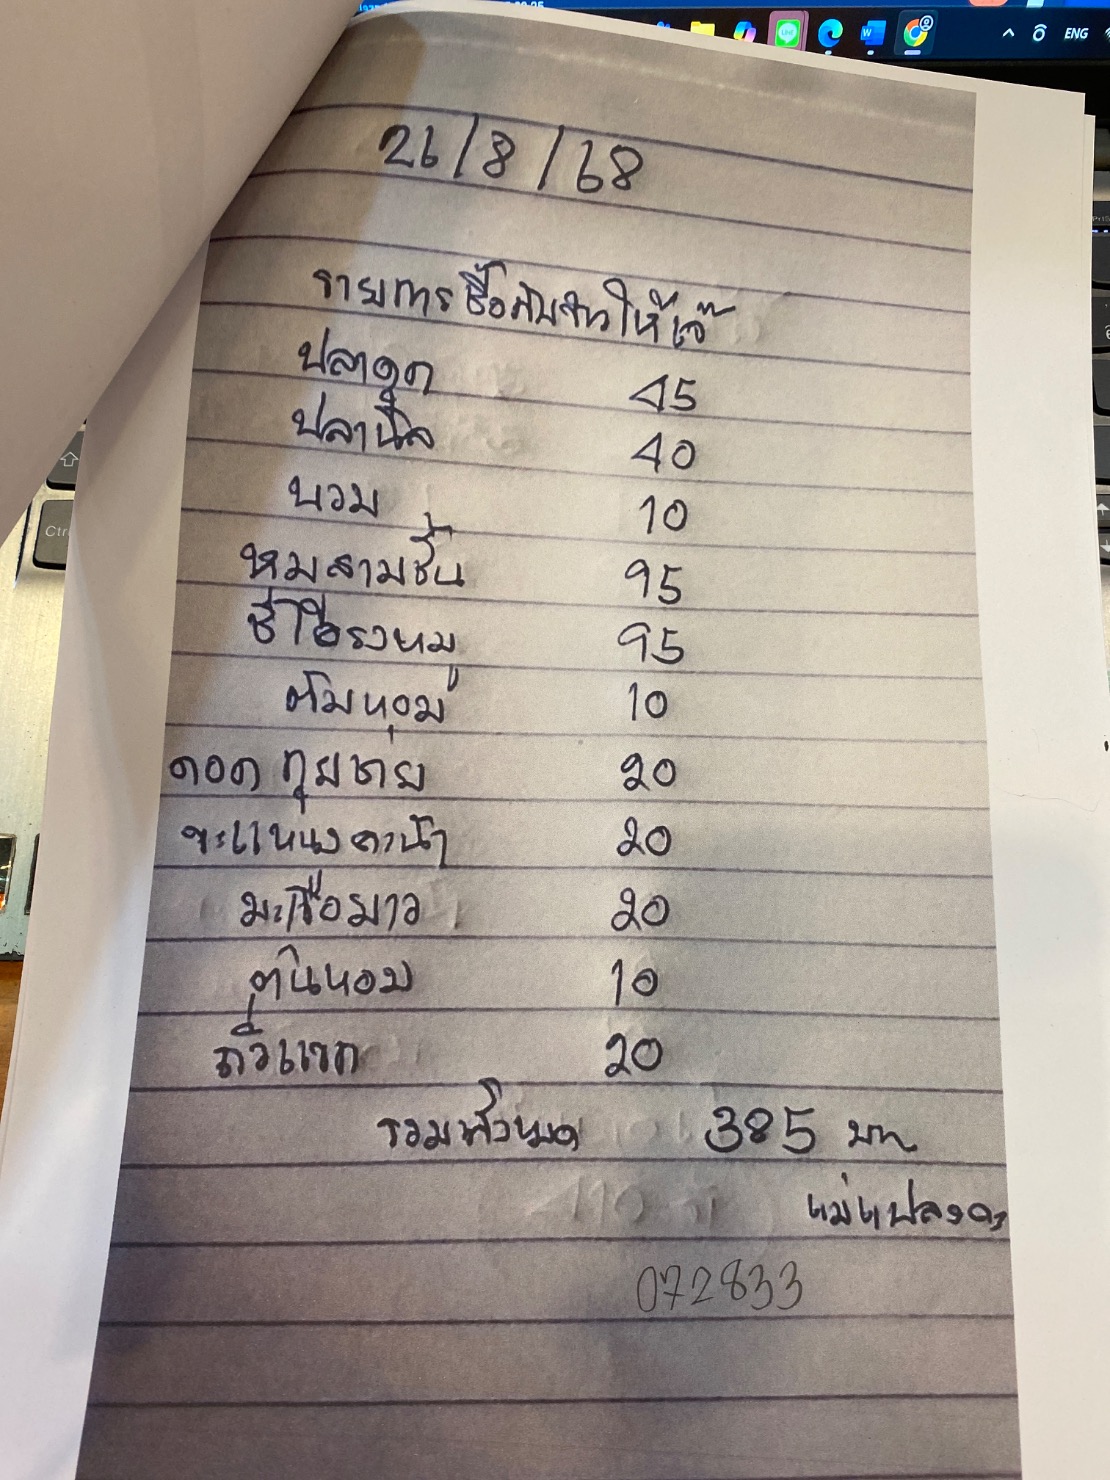 ENG
26/8/68
รายการซื้อกับข้าวให้เจ๊
ปลาดุก 45
ปลานิล 40
บวม 10
หมสามชั้น 95
ซี่โครงหมู 95
ต้มหอม 10
ดอกกุยชาย 20
ขะแหนงคะน้า 20
มะเขือยาว 20
ต้นหอม 10
ถั่วแขก 20
รวมทั้งหมด 385 บาท
แม่แปลงคะ
072833
Ctrl